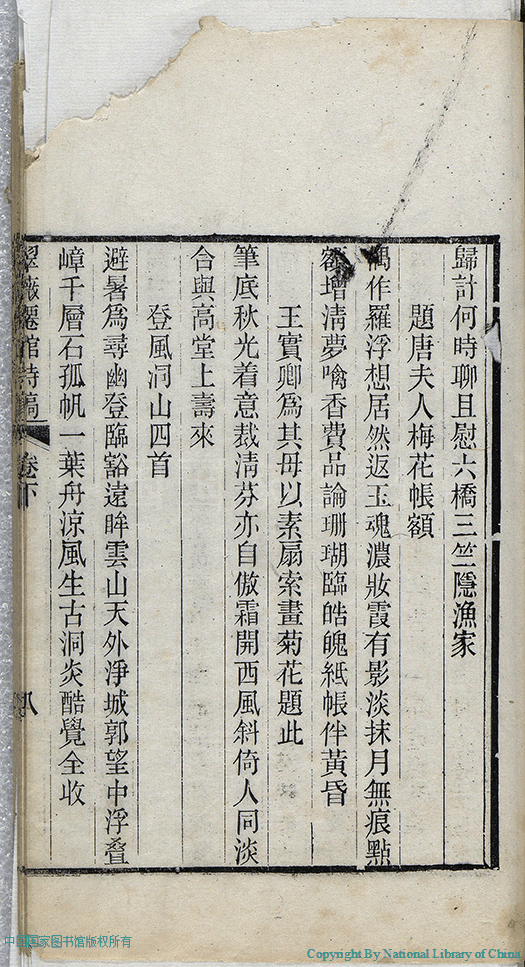 歸計何時聊且慰六橋三竺隱漁家
題唐夫人梅花帳額
偶作羅浮想居然返玉魂濃妝霞有影淡抹月無痕點
額增清夢噙香費品論珊瑚臨皓魄紙帳伴黃昏
王實卿為其母以素扇索畫菊花題此
筆底秋光着意裁清芬亦自傲霜開西風斜倚人同淡
合與高堂上壽來
登風洞山四首
避暑為尋幽登臨豁遠眸雲山天外淨城郭望中浮叠
嶂千層石孤帆一葉舟涼風生古洞炎酷覺全收
翠薇僊館詩稿 卷下 八
中国国家图书馆版权所有
Copyright By National Library of China